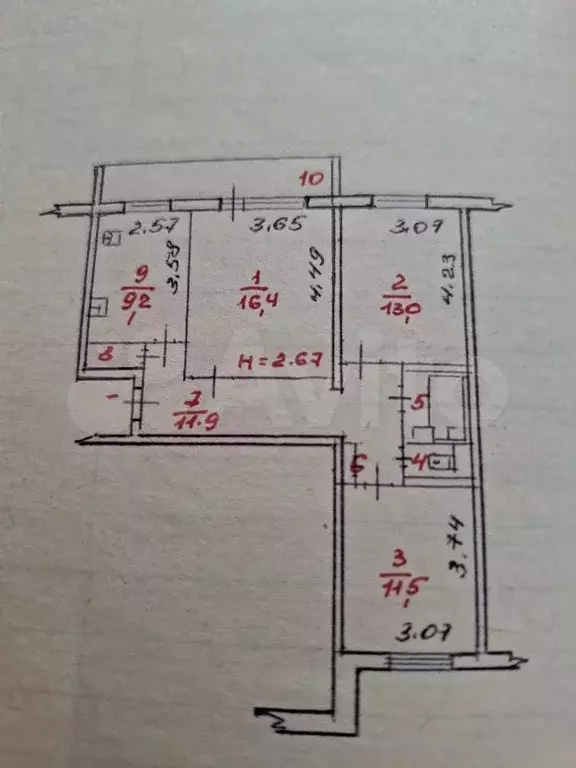 10
2.57
3.65
3.07
9
9,2
3.59
1
16,4
4.49
2
13,0
4.23
8
H = 2.67
7
11.9
5
6
4
3
11,5
3.74
3.07
Avito